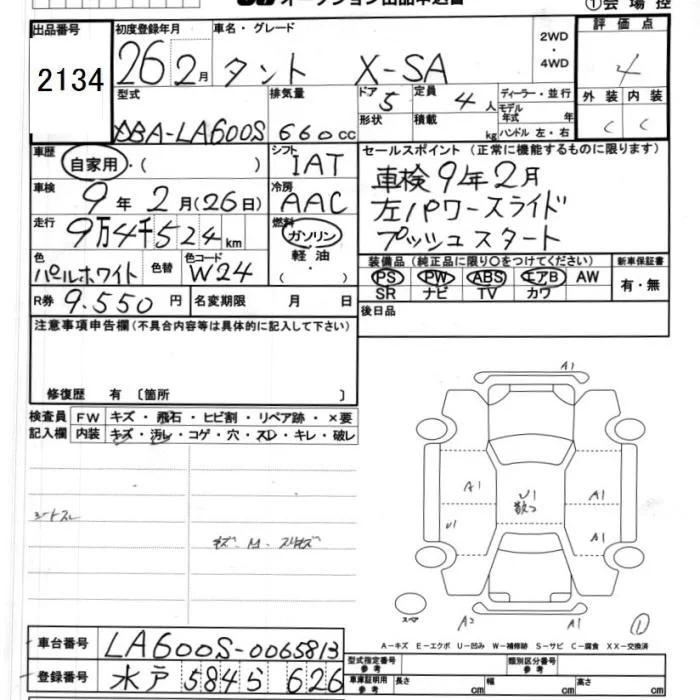 ①会場控
出品番号
2134
初度登録年月
26 2月
車名・グレード
タント X-SA
2WD
・
4WD
評価点
4
外装 内装
C C
型式
DBA-LA600S
排気量
660cc
ドア 5
形状
定員 4人
積載 kg
ディーラー・並行
モデル
年式 年
ハンドル 左・右
車歴
自家用・( )
シフト
IAT
セールスポイント (正常に機能するものに限ります)
車検9年2月
左パワースライド
プッシュスタート
車検
9年2月(26日)
冷房
AAC
走行
9万4千524km
燃料
ガソリン
軽油
・( )
色
パールホワイト
色替
色コード
W24
装備品 (純正品に限り〇をつけてください)
PS PW ABS エアB AW
SR ナビ TV カワ
新車保証書
有・無
R券 9.550円
名変期限 月 日
後日品
注意事項申告欄(不具合内容等は具体的に記入して下さい)
修復歴 有〔箇所 〕
検査員 FW キズ・飛石・ヒビ割・リペア跡・×要
記入欄 内装 キズ・汚レ・コゲ・穴・スレ・キレ・破レ
シートスレ
A1
A1
U1
U1
A1
A1
A2
A1
①
A-キズ E-エクボ U-凹み W-補修跡 S-サビ C-腐食 XX-交換済
車台番号 LA600S-0065813
登録番号 水戸 584 ら 626
型式指定番号
参考
類別区分番号
参考
車庫証明用
参考
長さ cm 幅 cm 高さ cm